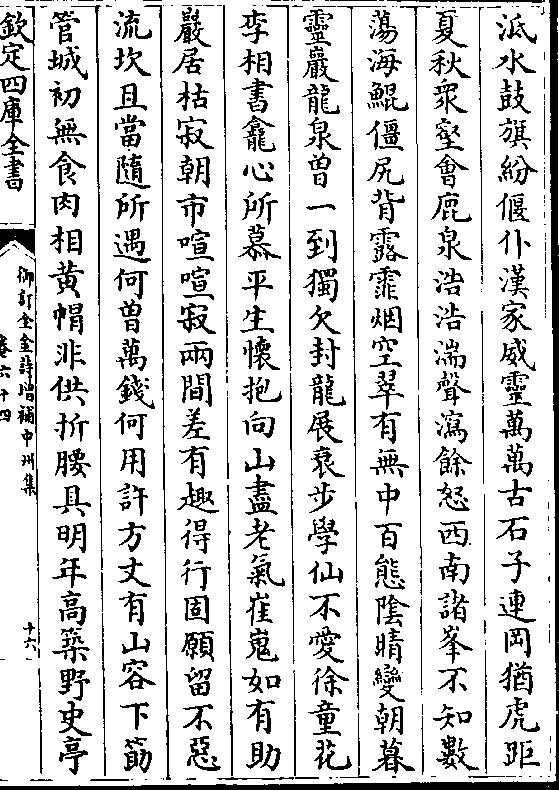 泜水鼓旗紛偃仆漢家威靈萬萬古石子連岡猶虎距
夏秋衆壑會鹿泉浩浩湍聲瀉餘怒西南諸峯不知數
蕩海鯤僵尻背露霏烟空翠有無中百態陰晴變朝暮
靈巖龍泉曽一到獨欠封龍展衰步學仙不愛徐童花
李相書龕心所慕平生懷抱向山盡老氣崔嵬如有助
巖居枯寂朝市喧喧寂兩間差有趣得行固願留不惡
流坎且當隨所遇何曽萬錢何用許方丈有山容下筯
管城初無食肉相黄帽非供折腰具明年高築野史亭
欽定四庫全書
御訂全金詩增補中州集
卷六十四
十六